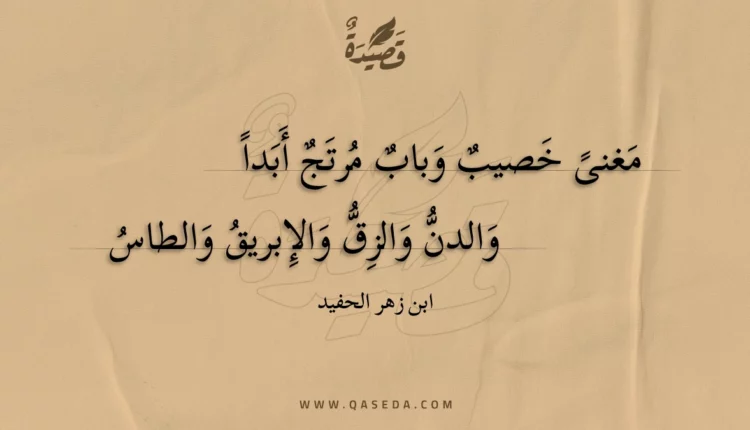 قَصِيدَةٌ
مَغنىً خَصيبٌ وَبابٌ مُرتَجٌ أَبَداً
وَالدنُّ وَالزِقُّ وَالإِبريقُ وَالطاسُ
ابن زهر الحفيد
WWW.QASEDA.COM